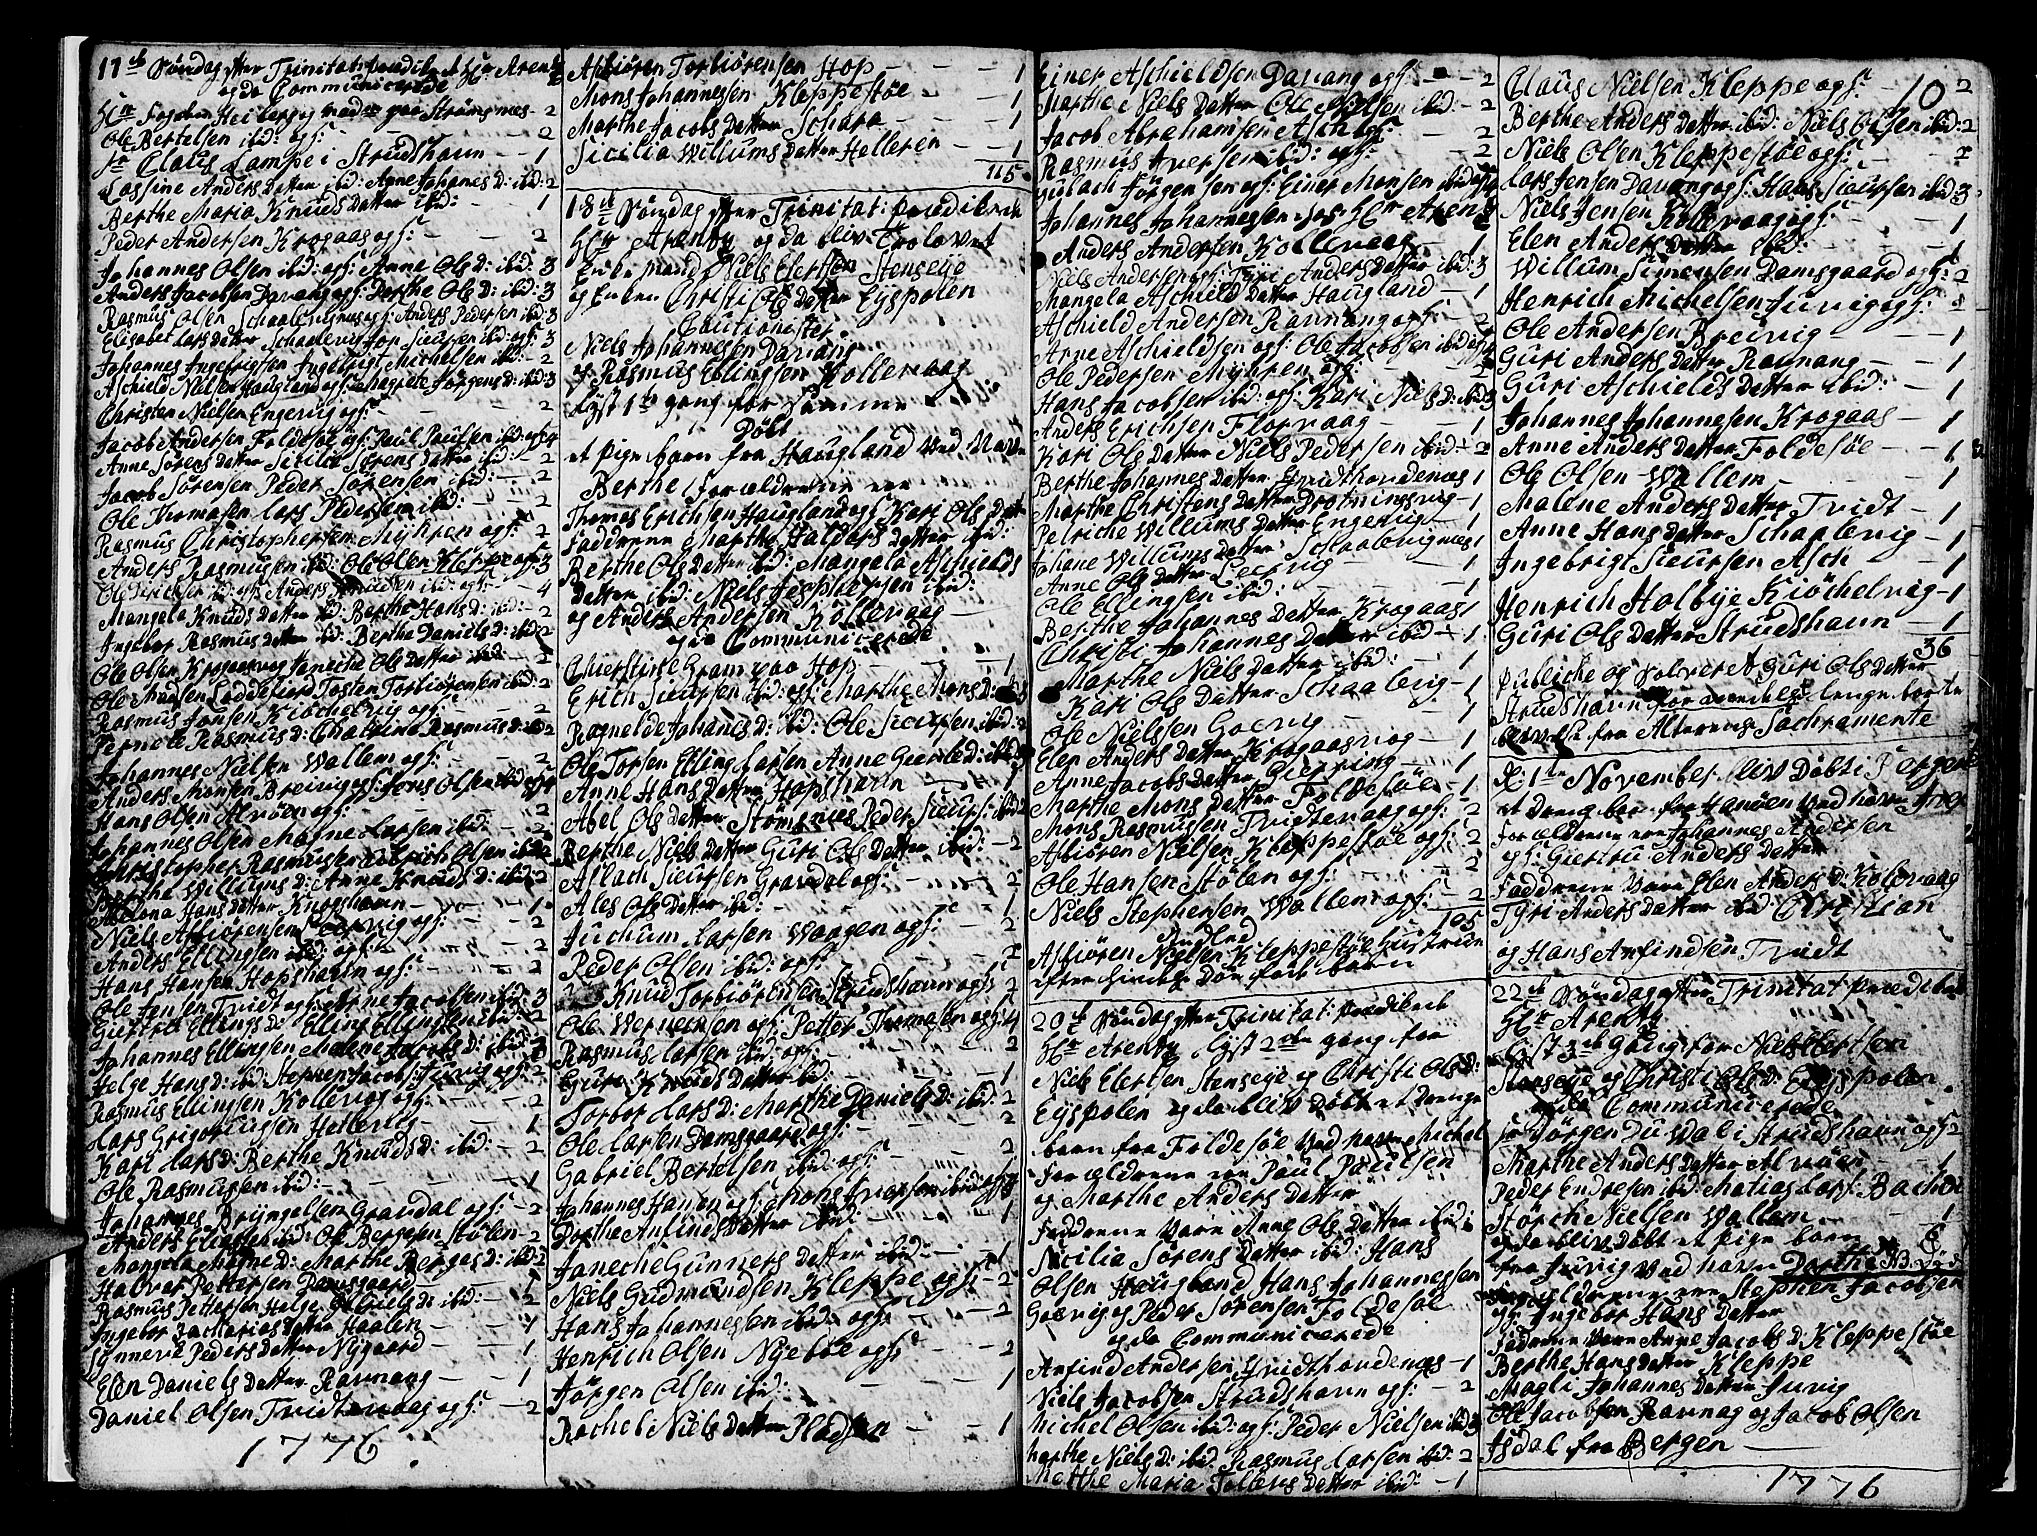 17de Søndag efter Trinitat: prædiket Hr Arentz
og da Communicerede
Hr Fogden Heiberg og madm paa Strømsnes - 2
Ole Bertelsen ibid: ogh: - 2
Sr Claus Lampe i Strudshavn - 1
Lassine Anders Datter ibid: Anne Johanes D: ibid: 2
Berthe Maria Knuds Datter ibid: - 1
Peder Andersen Krogaas ogh: - 2
Johannes Olsen ibid: ogh: Anne Ols D: ibid: 3
Anders Jacobsen Davang ogh: Dorthe Ols D: ibid: 3
Rasmus Olsen Schaalevignes ogh: Anders Pedersen ibid: 3
Elisabet Lars Datter Schaalevig Jon Siursen ibid: ogh: 3
Johannes Ingebrigtsen Ingebrigt Michelsen ibid: - 2
Aschield Nielsen Haugland ogh: Margrete Jørgens D: ibid: 3
Christen Nielsen Engevig ogh: - 2
Jacob Andersen Foldesøe ogh: Paul Paulsen ibid: ogh: 4
Anne Sørens Datter Sicilia Sørens Datter ibid: - 2
Jacob Sørensen Peder Sørensen ibid: - 2
Ole Thomasen Lars Pedersen ibid: - 2
Rasmus Christophersen Myhren ogh: 2
Anders Rasmusen ibid: Ole Olsen Kleppe ogh: 3
Ole Dirichsen ibid: ogh: Anders Knudsen ibid: ogh: - 4
Mangela Knuds Datter ibid: Berthe Hans D: ibid: - 2
Ingebor Rasmus Datter ibid: Berthe Daniels D: ibid: 2
Ole Olsen Krogaasvog Janeche Ols Datter ibid - 2
Ole Madsen Loddefiord Tosten Torbiørensen ibid: 2
Rasmus Jonsen Kiøchelvig ogh: - 2
Pernele Rasmus D: Chatrina Rasmus D: ibid 2
Johannes Nielsen Wallem ogh: - 2
Anders Monsen Breivig ogh: Jens Olsen ibid ogh 4
Hans Olsen Alvøen ogh: - 2
Johannes Olsen Magne Larsen ibid: - 2
Christopher Rasmussen Dirich Olsen ibid 2
Berthe Willums D: Anne Knuds D: ibid: 2
Malona Hans Datter Knapshavn - 1
Niels Asbiørensen Leervig ogh: - 2
Anders Ellingsen ibid: ogh: - 2
Hans Hansen Hopshavn ogh: - 2
Ole Jensen Tvidt ogh: Arne Jacobsen ibid: 3
Giertru Ellings D: Elling Ellingsen ibid: 2
Johannes Ellingsen Malene Jacobs D: ibid: 2
Helge Hans D: ibid: Stephen Jacobs: Juvig ogh: 2
Rasmus Ellingsen Kollevog ogh: - 2
Lars Grigoriussen Hellevig - 1
Kari Lars D: Berthe Knuds D: ibid: - 2
Ole Rasmusen ibid: - 1
Johannes Bryngelsen Gravdal ogh: - 2
Anders Eliassen ibid: Ole Bergesen Stølen - 2
Mangela Magne D: Marthe Berges D: ibid: 2
Halvor Pettersen Damsgaard - 1
Rasmus Pettersen Helge Gabriels D: ibid: - 2
Ingebor Zacharias Datter Haalen - 1
Synneve Peders Datter Nygaard - 1
Elen Daniels Datter Ravnang - 1
Daniel Olsen Tvidtevaag ogh: - 2
1776.
Asbiøren Torbiørensen Hop - 1
Mons Johannessen Kleppestøe - 1
Marthe Jacobs Datter Schara - 1
Sicilia Willums Datter Helleren - 1
115.
18de Søndag efter Trinitat: prædiket
Hr Arentz og da blev Trolovet
Enkemand Niels Elertsen Stenseye
og Enken Christi Ols Datter Eyspolen
Cautionister
Niels Johannessen Davang
og Rasmus Ellingsen Kollevaag
lyst 1te gang for samme
Døbt
et pigebarn fra Haugland ved Navn
Berthe forældrene ere
Thomas Erichsen Haugland ogh Kari Ols Datter
Faddrene Marthe Haldors Datter ibid:
Berthe Ols Datter ibid: Mangela Aschields
Datter ibid: Niels Jespersen ibid:
og Anders Andersen Kollevaag
og da Communicerede
Chierstine Gram paa Hop - 1
Erich Siursen ibid: ogh: Marthe Mons D:
Ragnelde Johanes D: ibid: Ole Siursen ibid: 2
Ole Torsen Elling Larsen Anne Gierts D: ibid:
Anne Hans Datter Hopshavn - 1
Abel Ols Datter Strømsnes Peder Siurs: ibid 2
Berthe Niels Datter Guri Ols Datter ibid: - 2
Aslach Siursen Gravdal ogh: - 2
Ales Ols Datter ibid: - 1
Juchum Larsen Waagen ogh: - 2
Peder Olsen ibid: ogh: - 2
Knud Torbiørensen Strudshavn ogh: 2
Ole Wernersen ogh: Petter Thomasen ogh: 4
Rasmus Larsen ibid: ogh: - 2
Guri Knuds Datter ibid: - 1
Torbor Lars D: Marthe Daniels D: ibid: 2
Ole Larsen Damsgaard ogh: - 2
Gabriel Bertelsen ibid: ogh: - 2
Johannes Hansen ogh: Mons Iversen ibid: ogh: 4
Dorthe Anfinds Datter ibid: - 1
Janeche Gunners Datter ibid: - 1
Niels Gudmundsen Kleppe ogh: - 2
Hans Johannessen ibid: ogh: - 2
Henrich Olsen Nyebøe ogh: - 2
Jørgen Olsen ibid: - 1
Rachel Niels Datter Pladsen - 1
Einer Aschieldsen Davang ogh: - 2
Marthe Niels Datter Ole Nielsen ibid: - 2
Jacob Abrahamsen Asch ogh: - 2
Rasmus Iversen ibid: ogh: - 2
Gulach Jørgensen ogh: Einer Monsen ibid ogh 4
Johannes Johannessen hos Hr Arentz
Anders Andersen Kollevaag - 1
Niels Andersen ogh: Tyri Anders Datter ibid: 3
Mangela Aschields Datter Haugland - 1
Aschield Andersen Ravnang ogh: - 2
Anne Aschieldsen ogh: Ole Jacobsen ibid: ogh 4
Ole Pedersen Myhren ogh: - 2
Hans Jacobsen ibid: ogh: Kari Niels D: ibid: 3
Anders Erichsen Florvaag - 1
Kari Ols Datter Niels Pedersen ibid: - 2
Berthe Johannes Datter Qvidthovdenæs 1
Marthe Christens Datter Drotningsvig - 1
Petriche Willums Datter Engevig - 1
Johane Willums Datter Schaalevignæs 1
Anne Ols Datter Leervig - 1
Ole Ellingsen ibid: - 1
Berthe Johannes Datter Krogaas 1
Christi Johannes Datter ibid - 1
Marthe Niels Datter ibid: - 1
Kari Ols Datter Schaalevig - 1
Ole Nielsen Goevig - 1
Elen Anders Datter Krogaasvog - 1
Anne Jacobs Datter Gietving - 1
Marthe Mons Datter Foldesøe - 1
Mons Rasmussen Tvidtevaag ogh: 2
Asbiøren Nielsen Kleppestøe ogh: 2
Ole Hansen Stølen ogh: - 2
Niels Stephensen Wallem ogh: 2
105
Indled
Asbiøren Nielsen Kleppestøe hustrue
efter hindes Død fødte barn
20de Søndag efter Trinitat: prædiket
Hr Arentz lyst 2den gang for
Niels Elertsen Stenseye og Christi Ols D:
Eyspolen og da blev Døbt et Drenge
barn fra Foldesøe ved navn Michel
forældrene ere Paul Paulsen
og Marthe Anders Datter
Faddrene vare Anne Ols Datter ibid:
Sicilia Sørens Datter ibid: Hans
Olsen Haugland Hans Johannessen
Goevig og Peder Sørensen Foldesøe
og da Communicerede
Anfind Andersen Qvidthovdenæs - 1
Niels Jacobsen Strudshavn ogh: - 2
Michel Olsen ibid: ogh: Peder Nielsen ibid: 3
Marthe Niels D: ibid: Rasmus Larsen ibid: 2
Methe Maria Tollevs Datter ibid: - 1
10
Claus Nielsen Kleppe ogh: - 2
Berthe Anders Datter ibid: Niels Olsen ibid: 2
Niels Olsen Kleppestøe ogh: - 2
Lars Jensen Davang ogh: Hans Siursen ibid: 3
Niels Jensen Kollevaag ogh: - 1
Elen Anders Datter ibid: - 1
Willum Simensen Damsgaard ogh: 2
Henrich Michelsen Juvig ogh: 2
Ole Andersen Breivig - 1
Guri Anders Datter Ravnang - 1
Guri Aschields Datter ibid: - 1
Johannes Johannesen Krogaas - 1
Anne Anders Datter Foldesøe - 1
Ole Olsen Wallem - 1
Malene Anders Datter Tvidt - 1
Anne Hans Datter Schaalevig - 1
Ingebrigt Siursen Asch - 1
Henrich Holbye Kiøchelvig - 1
Guri Ols Datter Strudshavn - 1
36
Publiche og Solveret Guri Ols Datter
Strudshavn for hendes lenge borte
blevelse fra Alterens Sachramente
D: 1te November blev Døbt i Bergen
et Drengebarn fra Hanøen ved navn
forældrene ere Johannes Andersen
ogh: Giertru Anders Datter
Faddrene vare Elen Anders D: Kolevaag
Tyri Anders Datter ibid Christian
og Hans Anfindsen Tvidt
22de Søndag efter Trinitat prædiket
Hr Arentz
Lyst 3de gang for Niels Elertsen
Stenseye og Christi Ols D: Eyspolen.
og da Communicerede
Sr Jørgen Du Wal i Strudshavn ogh 2
Marthe Anders Datter Alvøen - 1
Peder Endresen ibid: Matias Lars: Bachen
Størche Nielsen Wallem - 1
og da blev Døbt et pige barn 6
fra Juvig ved navn Dorthe
forældrene ere Stephen Jacobsen
ogh: Ingebor Hans Datter
Fadrene vare Anne Jacobs D: Kleppestøe
Berthe Hans Datter Kleppe
Magli Johannes Datter Juvig
Ole Jacobsen Ravnag og Jacob Olsen
Isdal fra Bergen
1776